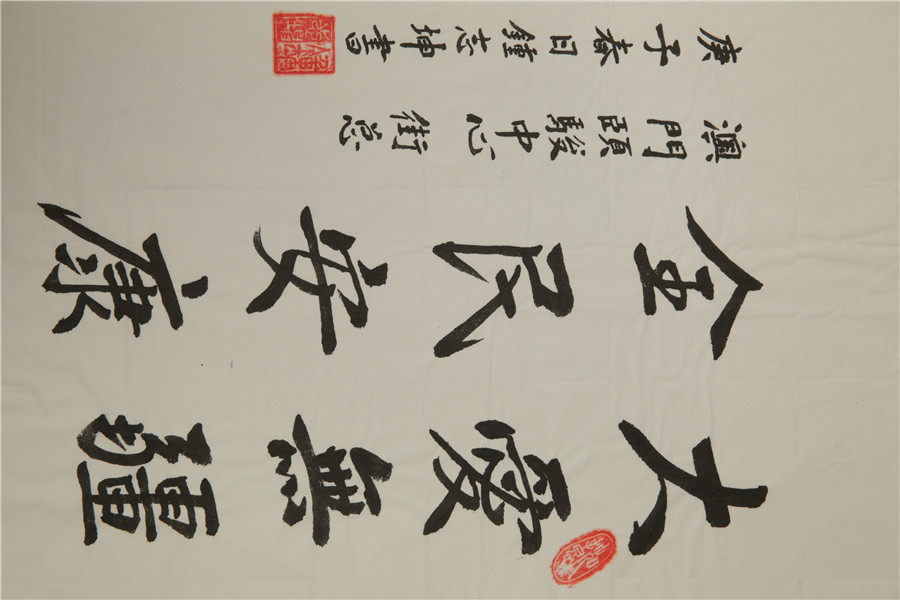 大愛無疆
全民安康
澳門頤駿中心街總
庚子春日鍾志坤書